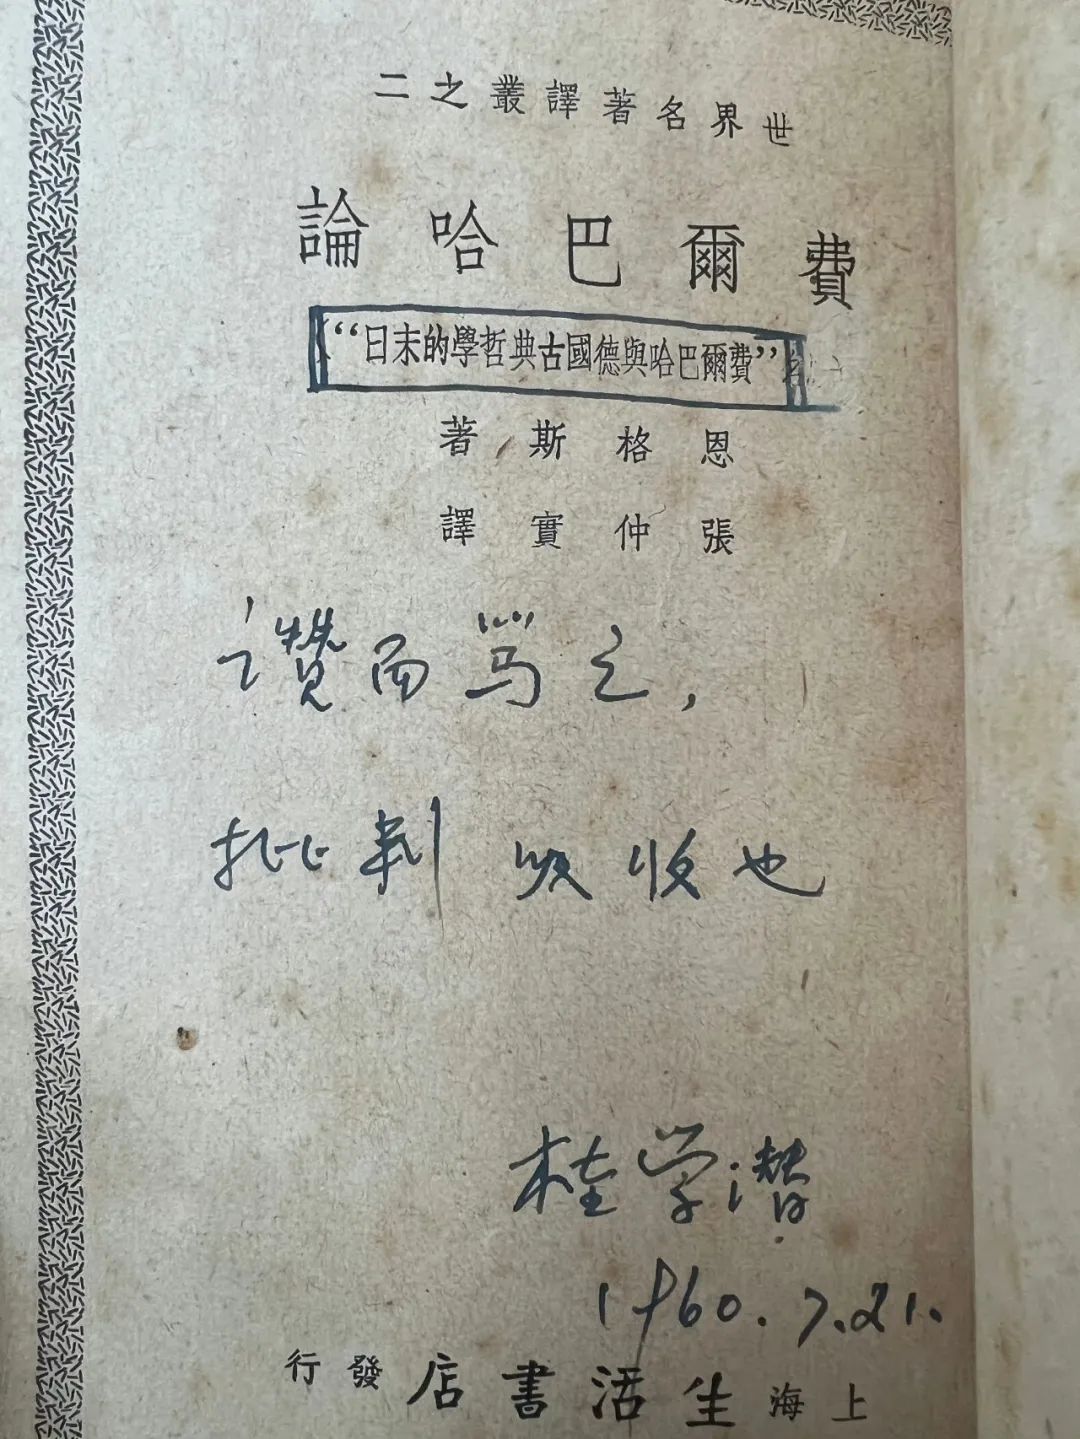 世界名著譯叢之二
費爾巴哈論
“費爾巴哈與德國古典哲學的末日”
恩格斯著
張仲實譯
讚而骂之，
批判吸收也
桂学潜
1960.7.21.
上海生活書店發行